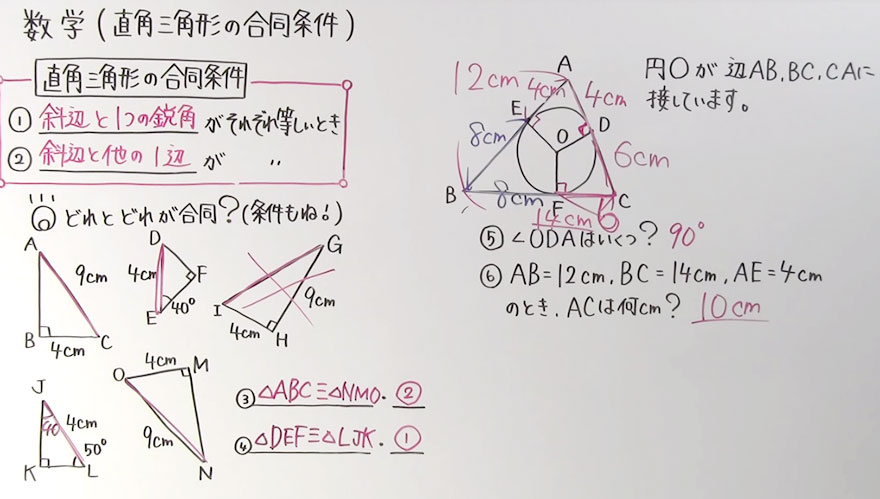 数学(直角三角形の合同条件)
直角三角形の合同条件
① 斜辺と1つの鋭角がそれぞれ等しいとき
② 斜辺と他の1辺が 〃
どれとどれが合同?(条件もね!)
A
9cm
B
4cm
C
D
4cm
F
E
40°
G
I
9cm
4cm
H
J
40
4cm
50°
K
L
4cm
M
O
9cm
N
③ △ABC≡△NMO. ②
④ △DEF≡△LJK. ①
円Oが辺AB,BC,CAに
接しています。
A
12cm
4cm
4cm
E
D
O
8cm
6cm
B
8cm
F
6
C
14cm
⑤ ∠ODAはいくつ? 90°
⑥ AB=12cm,BC=14cm,AE=4cm
のとき、ACは何cm? 10cm